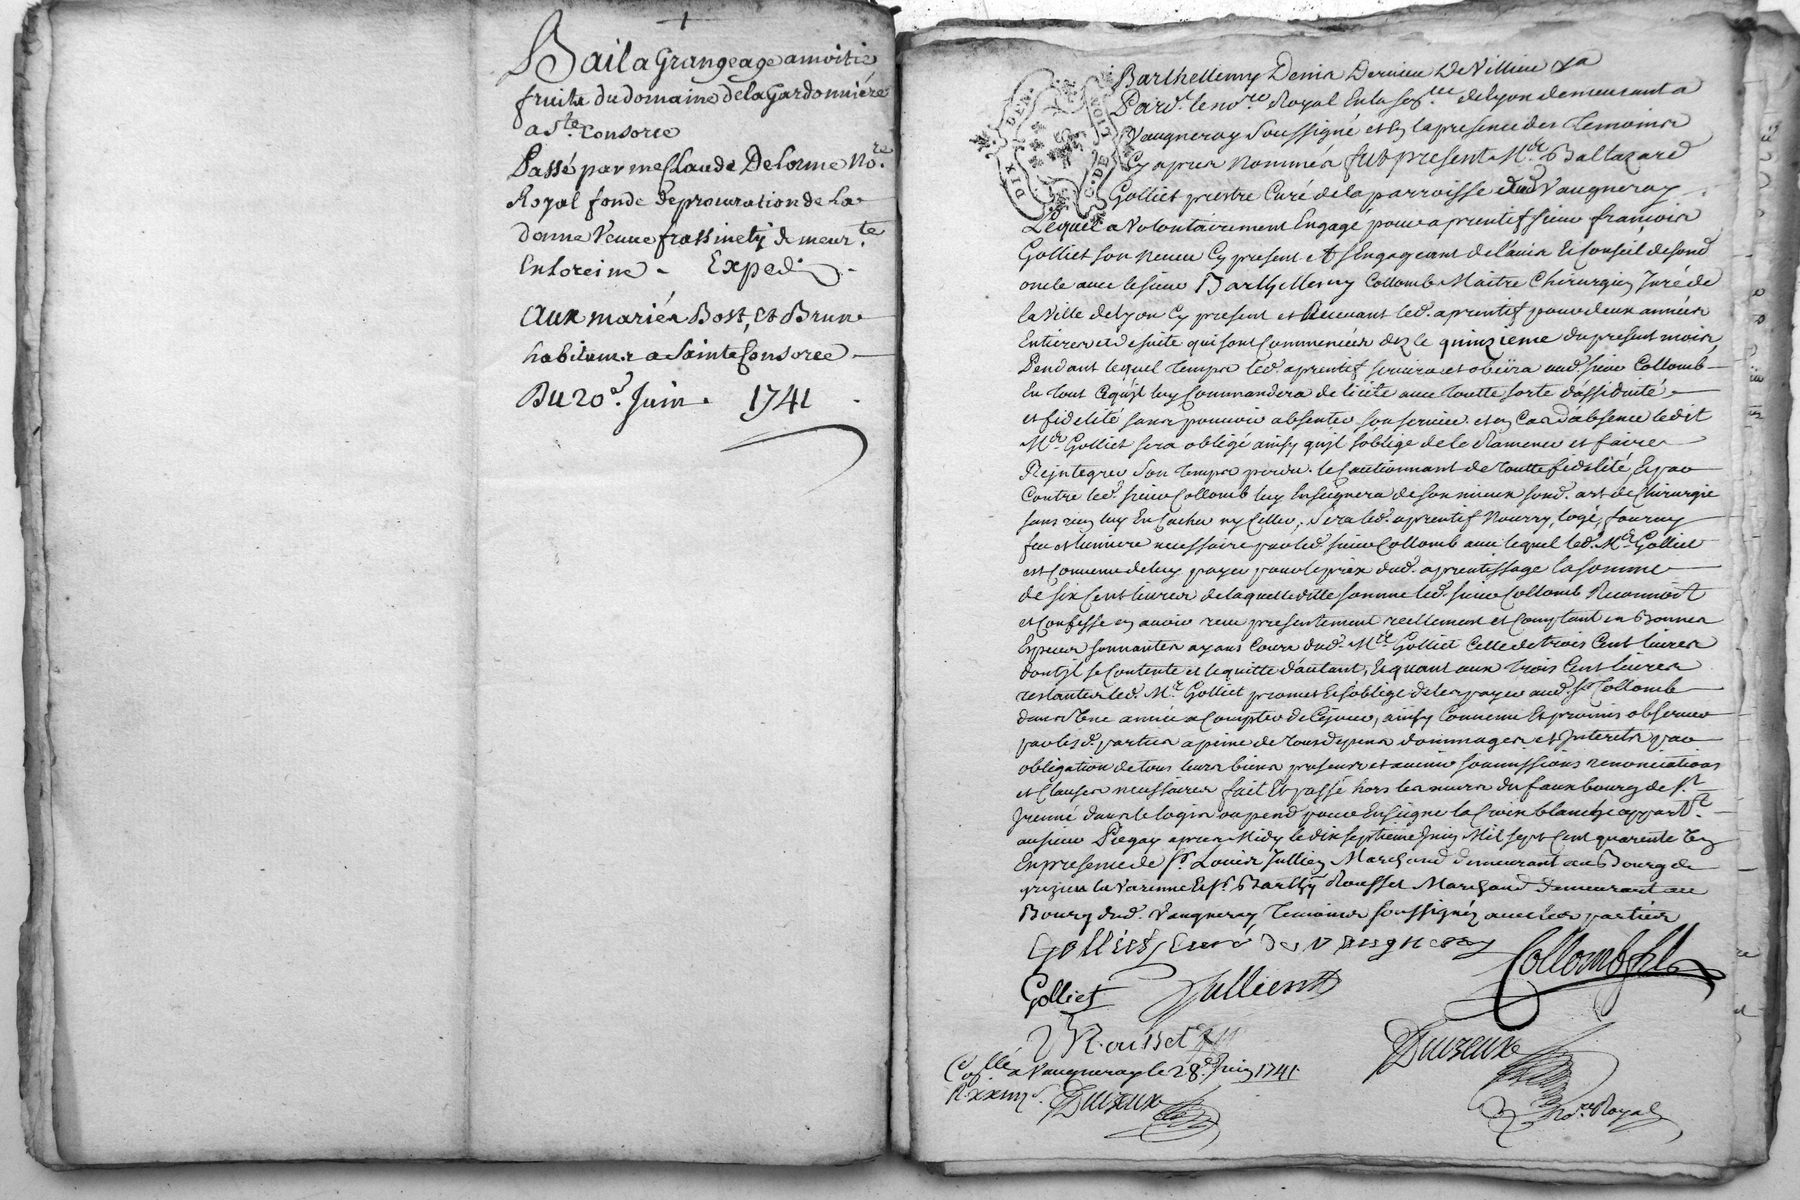 Bail a Grangeage amoitie
fruits du domaine de la Gardonniere
a Ste. Consorce
Passé par me Claude Delorme No.re
Royal fondé de procuration de La
dame Veuve frassinety demeur.te
En loreine - Exped.
Aux mariés Bost, et Brun
habitans a Sainte Consorce
Du 20e. Juin. 1741.
DIX DEN.
G. DE LION
Barthellemy Denis Dervieu De Villieu
Pard.t le no.re Royal En la Sen.ée de lyon demeurant a
Vaugneray Soussigné et En la presence des Temoins
Cy apres Nommés fut present M.re Baltazard
Golliet prestre Curé de la parroisse dud Vaugneray
Lequel a Volontairement Engagé pour aprentif sieur françois
Golliet son neveu Cy present et S'Engageant de l'avis Et Conseil de sond.
oncle avec le sieur Barthellemy Collomb Maitre Chirurgien Juré de
la Ville de lyon Cy present et Recevant led. aprentif pour deux années
Entieres et de suite qui sont Commencées dez le quinzieme du present mois,
Pendant lequel Temps led. aprentif servira et obéira aud. sieur Collomb
En tout Ce qu'jl luy Commandera de licite avec toutte sorte d'assiduité
et fidelité sans pouvoir absenter son service et en Cas d'absence ledit
M.re Golliet sera obligé ainsy qu'jl s'oblige de le Ramener et faire
Reintegrer Son Temps perdu. le Cautionnant de toutte fidelité Et par
Contre led. sieur Collomb luy Enseignera de son mieux sond. art de Chirurgie
sans rien luy En Cacher ny Celler, Sera led. aprentif Nourry, logé, fourny
feu et lumiere necessaire par led. sieur Collomb avec lequel led. M.re Golliet
est Convenu de luy payer pour le prix dud. aprentissage la somme
de six Cent livres de laquelle ditte somme led. sieur Collomb Reconnoit
et Confesse en avoir reçu presentement réellement et Comptant en Bonnes
Especes sonnantes ayans Cours dud. M.re Golliet Celle de trois Cent livres
dont jl se Contente et le quitte d'autant, Et quant aux trois Cent livres
restantes led. M.re Golliet promet Et s'oblige de les payer aud. Sr Collomb
dans Une année a Compter de Ce jour, ainsy Convenu Et promis observer
par lesd. parties a peine de tous depens dommages et Interets par
obligation de tous leurs biens presens et avenir soumissions renonciations
et Clauses necessaires fait Et passé hors les murs du fauxbourg de St.
Jrenné dans le logis ou pend pour Enseigne la Croix blanche appart.t
au sieur Piegay apres Midy le dix septieme Juin Mil sept Cent quarente Un
En presence de Sr. Louis Jullien Marchand demeurant au Bourg de
grezieu la Varenne Et Sr. Barthy Rousset Marchand Demeurant au
Bourg dud. Vaugneray Temoins soussignéz avec les parties
Golliet, Curé de vaugneray
Collomb fils
Golliet
Jullien
Rousset
Duizeux
No.re Royal
Con.llé a Vaugneray le 28e. Juin 1741.
Duizeux